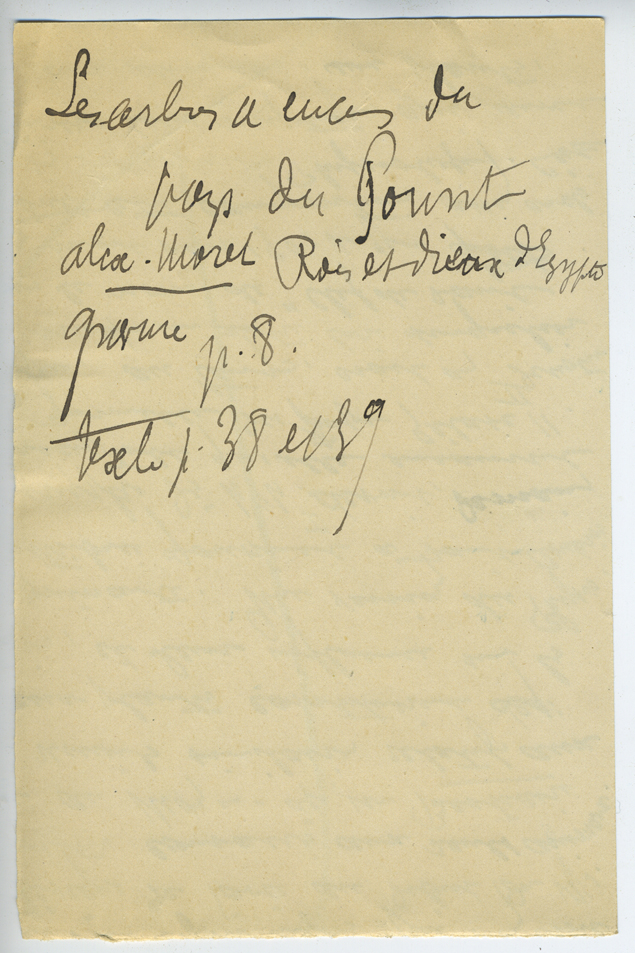 Les arbres a encens du
pays du Pount
alex. Moret Rois et dieux d'Egypte
gravure p. 8.
texte p. 38 et 39